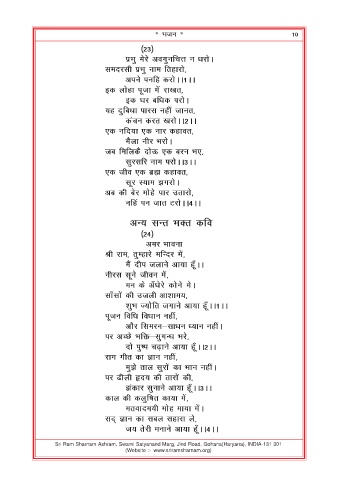 * भजन *
10
(23)
प्रभु मेरे अवगुनचित्त न धरो।
समदरसी प्रभु नाम तिहारो,
अपने पनहि करो।।1।।
इक लोहा पूजा में राखत,
इक घर बधिक परो।
यह दुबिधा पारस नहीं जानत,
कंचन करत खरो।।2।।
एक नदिया एक नार कहावत,
मैला नीर भरो।
जब मिलिकै दोऊ एक बरन भए,
सुरसरि नाम परो।।3।।
एक जीव एक ब्रह्म कहावत,
सूर स्याम झगरो।
अब की बेर मोहे पार उतारो,
नहिं पन जात टरो।।4।।
अन्य सन्त भक्त कवि
(24)
अमर भावना
श्री राम, तुम्हारे मन्दिर में,
मैं दीप जलाने आया हूँ।।
नीरस सूने जीवन में,
मन के अँधेरे कोने में।
साँसों की उजली आशामय,
शुभ ज्योति जगाने आया हूँ।।1।।
पूजन विधि विधान नहीं,
और सिमरन-साधन ध्यान नहीं।
पर अच्छे भक्ति-सुगन्ध भरे,
दो पुष्प चढ़ाने आया हूँ।।2।।
राग गीत का ज्ञान नहीं,
मुझे ताल सुरों का भान नहीं।
पर ढीली हृदय की तारों की,
झंकार सुनाने आया हूँ।।3।।
काल की कलुषित काया में,
मतवादमयी मोह माया में।
सद् ज्ञान का सबल सहारा ले,
जय तेरी मनाने आया हूँ।।4।।
Sri Ram Sharnam Ashram, Swami Satyanand Marg, Jind Road, Gohana(Haryana), INDIA-131 301
(Website :- www.sriramsharnam.org)